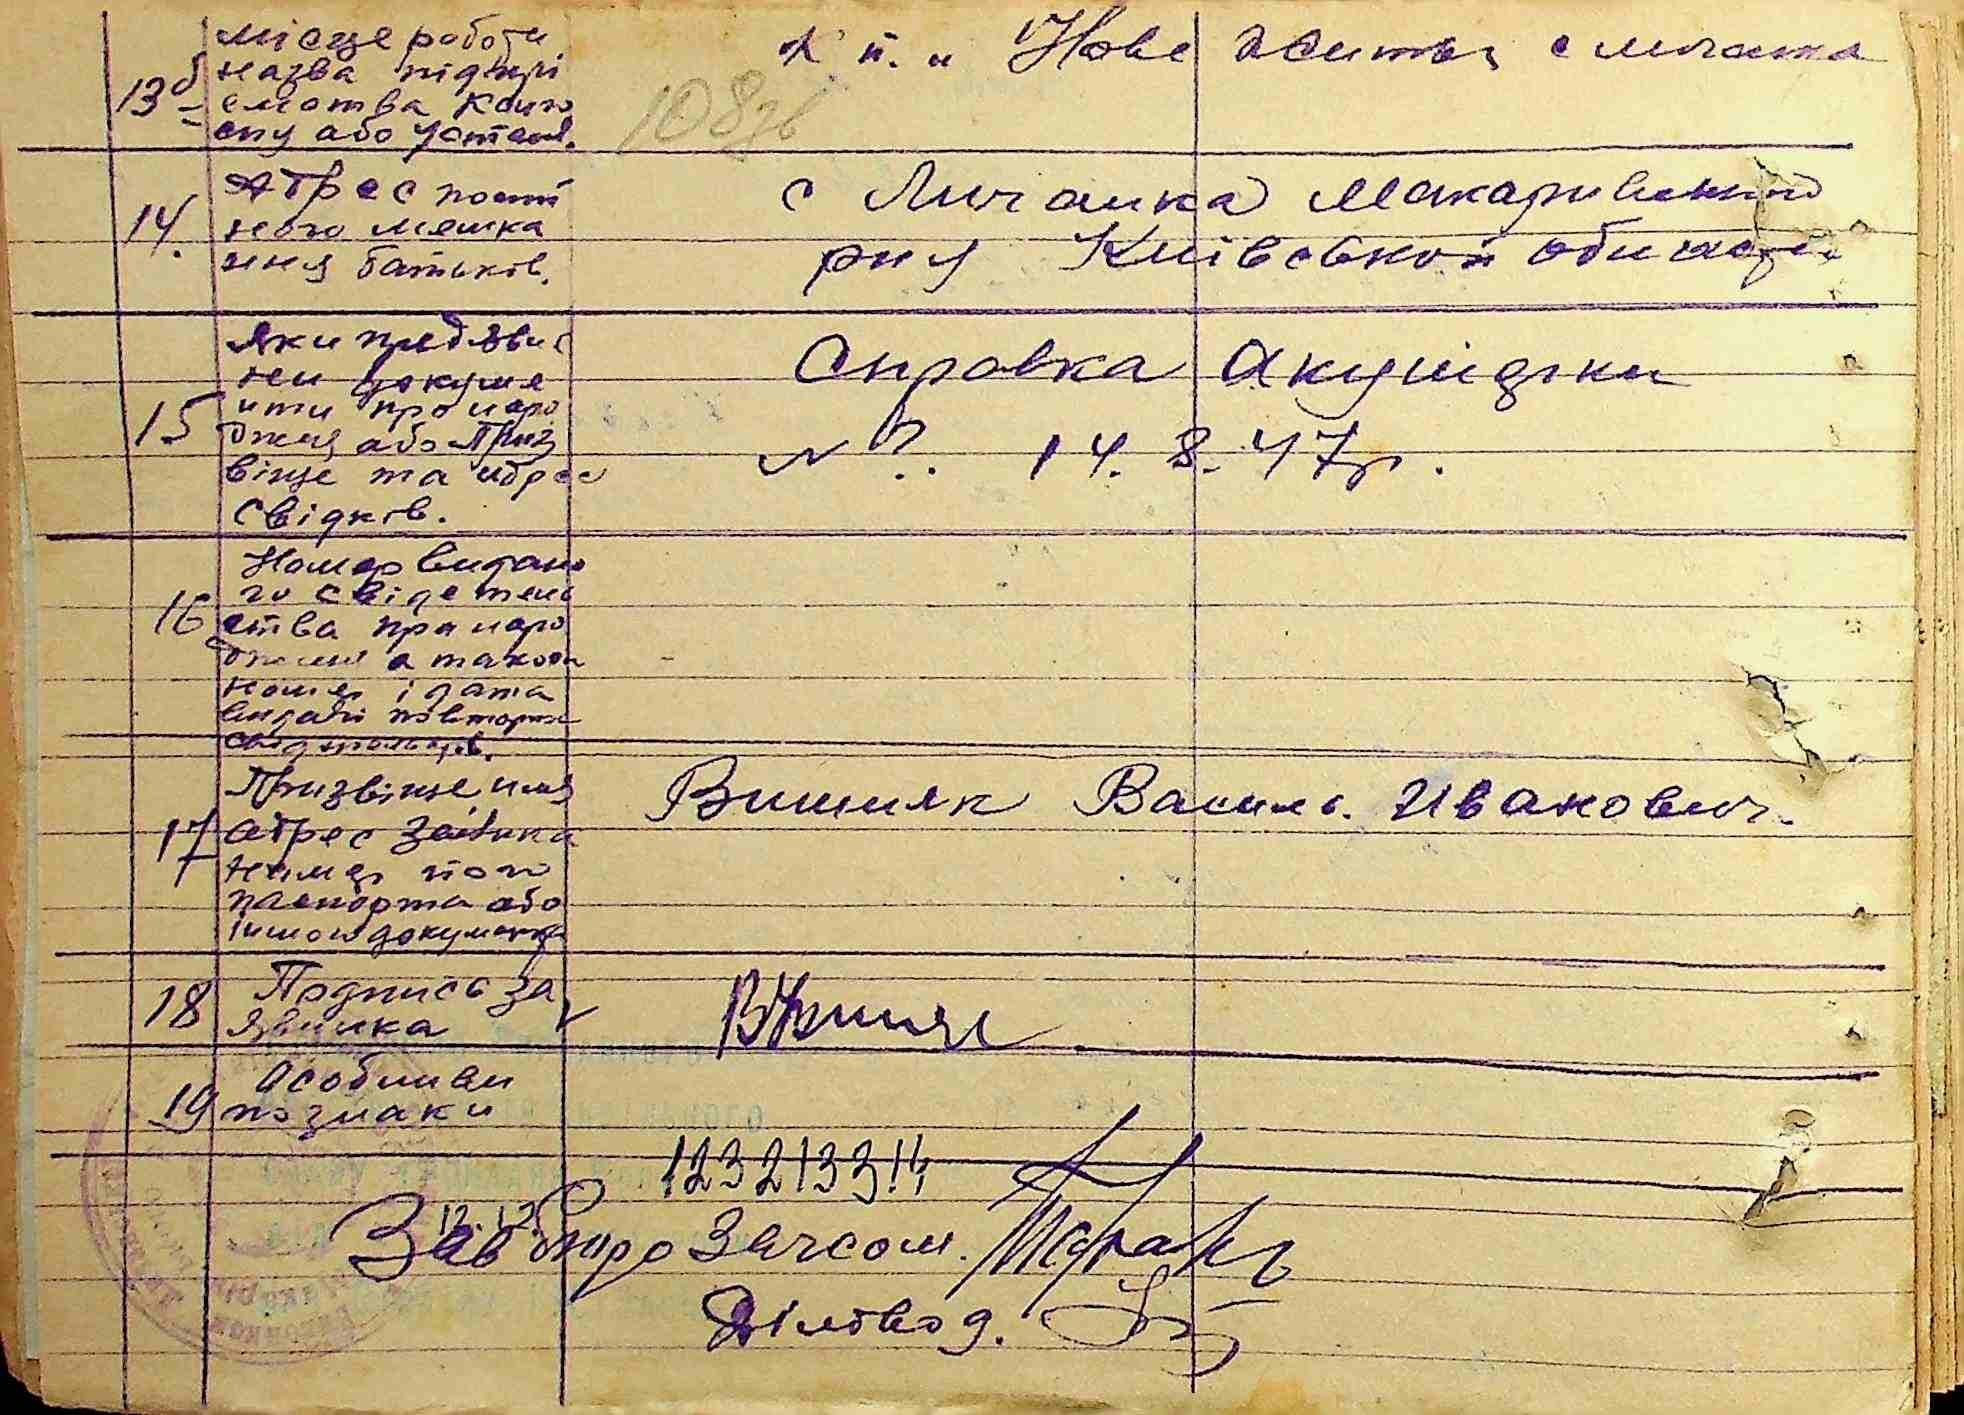 13б місце роботи
назва підпрі
ємства колго
спу або устан.
к п. и Нове життя с Личанка
108зв
14. Адрес пості
ного мешка
ння батьків.
с Личанка Макаривского
рня Київськой области
15 Яки предявле
нєи докуме
нти про наро
дженя або Приз
віще та адрес
свідків.
Справка Акушерки
№ ?. 14. 8. 47р.
16 Номер видано
го свідетель
ства про наро
дження а також
номер і дата
видачі повторних
17 Призвіще, имя
адрес заявика
номер його
паспорта або
іншого документа
Вишняк Василь. Иванович.
18 Подпись за
явника
19 Особливи
познаки
12321331
12.12.
Зав бюро Загсом.
Діловод.